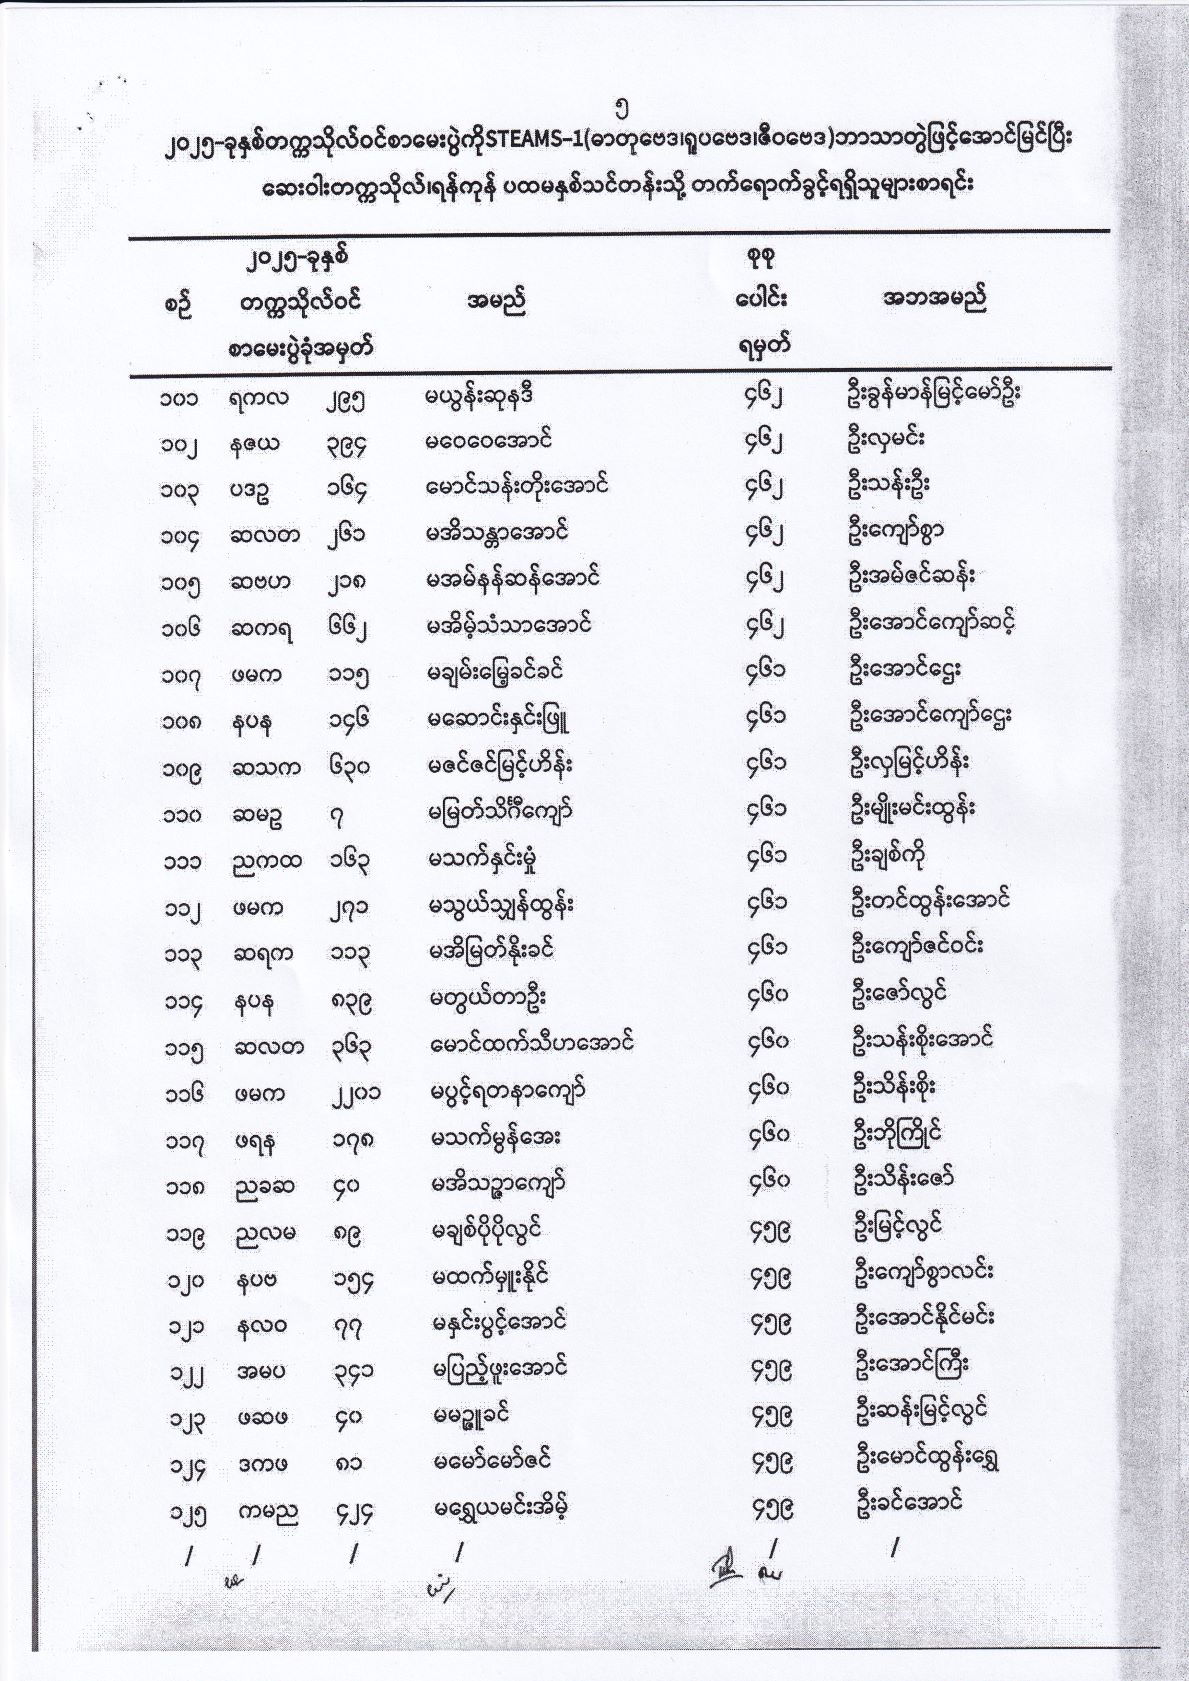 ၅
၂၀၂၅-ခုနှစ်တက္ကသိုလ်ဝင်စာမေးပွဲကိုSTEAMS-1(ဓာတုဗေဒ၊ရူပဗေဒ၊ဇီဝဗေဒ)ဘာသာတွဲဖြင့်အောင်မြင်ပြီး
ဆေးဝါးတက္ကသိုလ်၊ရန်ကုန် ပထမနှစ်သင်တန်းသို့ တက်ရောက်ခွင့်ရရှိသူများစာရင်း
စဉ် ၂၀၂၅-ခုနှစ် တက္ကသိုလ်ဝင် စာမေးပွဲခုံအမှတ် အမည် စုစု ပေါင်း ရမှတ် အဘအမည်
၁၀၁ ရကလ ၂၉၅ မယွန်းဆုနဒီ ၄၆၂ ဦးခွန်မာန်မြင့်မော်ဦး
၁၀၂ နဇယ ၃၉၄ မဝေဝေအောင် ၄၆၂ ဦးလှမင်း
၁၀၃ ပဒဥ ၁၆၄ မောင်သန်းတိုးအောင် ၄၆၂ ဦးသန်းဦး
၁၀၄ ဆလတ ၂၆၁ မအိသန္တာအောင် ၄၆၂ ဦးကျော်စွာ
၁၀၅ ဆဗဟ ၂၁၈ မအမ်နန်ဆန်အောင် ၄၆၂ ဦးအမ်ဇင်ဆန်း
၁၀၆ ဆကရ ၆၆၂ မအိမ့်သံသာအောင် ၄၆၂ ဦးအောင်ကျော်ဆင့်
၁၀၇ ဖမက ၁၁၅ မချမ်းမြေ့ခင်ခင် ၄၆၁ ဦးအောင်ဌေး
၁၀၈ နပန ၁၄၆ မဆောင်းနှင်းဖြူ ၄၆၁ ဦးအောင်ကျော်ဌေး
၁၀၉ ဆသက ၆၃၀ မဇင်ဇင်မြင့်ဟိန်း ၄၆၁ ဦးလှမြင့်ဟိန်း
၁၁၀ ဆမဥ ၇ မမြတ်သိင်္ဂီကျော် ၄၆၁ ဦးမျိုးမင်းထွန်း
၁၁၁ ညကထ ၁၆၃ မသက်နှင်းမှုံ ၄၆၁ ဦးချစ်ကို
၁၁၂ ဖမက ၂၇၁ မသွယ်သျှန်ထွန်း ၄၆၁ ဦးတင်ထွန်းအောင်
၁၁၃ ဆရက ၁၁၃ မအိမြတ်နိုးခင် ၄၆၁ ဦးကျော်ဇင်ဝင်း
၁၁၄ နပန ၈၃၉ မတွယ်တာဦး ၄၆၀ ဦးဇော်လွင်
၁၁၅ ဆလတ ၃၆၃ မောင်ထက်သီဟအောင် ၄၆၀ ဦးသန်းစိုးအောင်
၁၁၆ ဖမက ၂၂၀၁ မပွင့်ရတနာကျော် ၄၆၀ ဦးသိန်းစိုး
၁၁၇ ဖရန ၁၇၈ မသက်မွန်အေး ၄၆၀ ဦးဘိုကြိုင်
၁၁၈ ညခဆ ၄၀ မအိသဉ္ဇာကျော် ၄၆၀ ဦးသိန်းဇော်
၁၁၉ ညလမ ၈၉ မချစ်ပိုပိုလွင် ၄၅၉ ဦးမြင့်လွင်
၁၂၀ နပဗ ၁၅၄ မထက်မှူးနိုင် ၄၅၉ ဦးကျော်စွာလင်း
၁၂၁ နလဝ ၇၇ မနှင်းပွင့်အောင် ၄၅၉ ဦးအောင်နိုင်မင်း
၁၂၂ အမပ ၃၄၁ မပြည့်ဖူးအောင် ၄၅၉ ဦးအောင်ကြီး
၁၂၃ ဖဆဖ ၄၀ မမဉ္ဇူခင် ၄၅၉ ဦးဆန်းမြင့်လွင်
၁၂၄ ဒကဖ ၈၁ မမော်မော်ဇင် ၄၅၉ ဦးမောင်ထွန်းရွှေ
၁၂၅ ကမည ၄၂၄ မရွှေယမင်းအိမ့် ၄၅၉ ဦးခင်အောင်
/ / / / / /